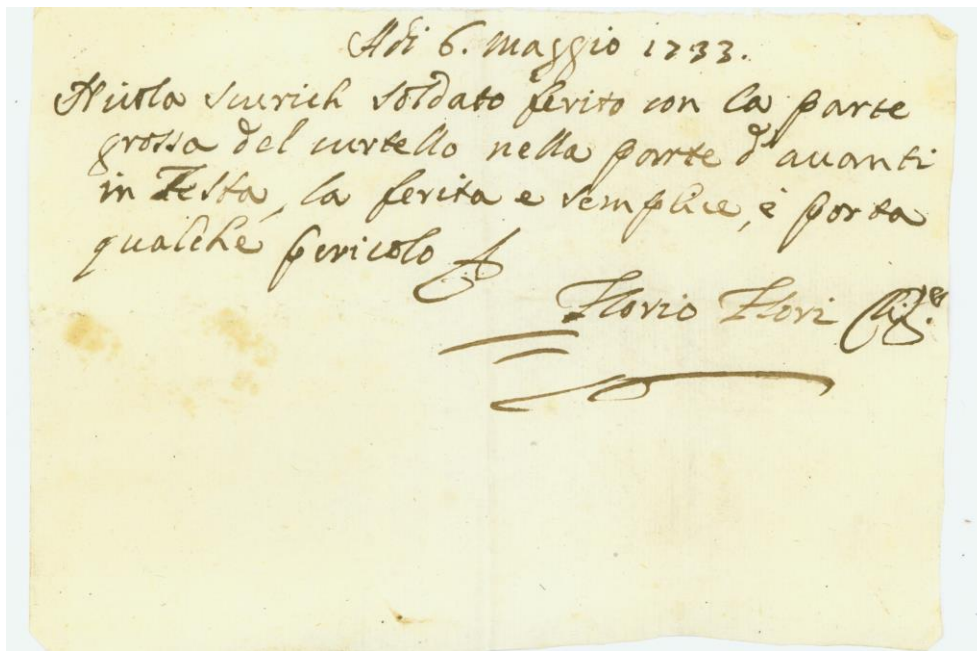 Adi 6. Maggio 1733.
Nicola Scurich soldato ferito con la parte
grossa del curtello nella parte d'avanti
in Testa, la ferita e semplice, è porta
qualche pericolo
Florio Flori